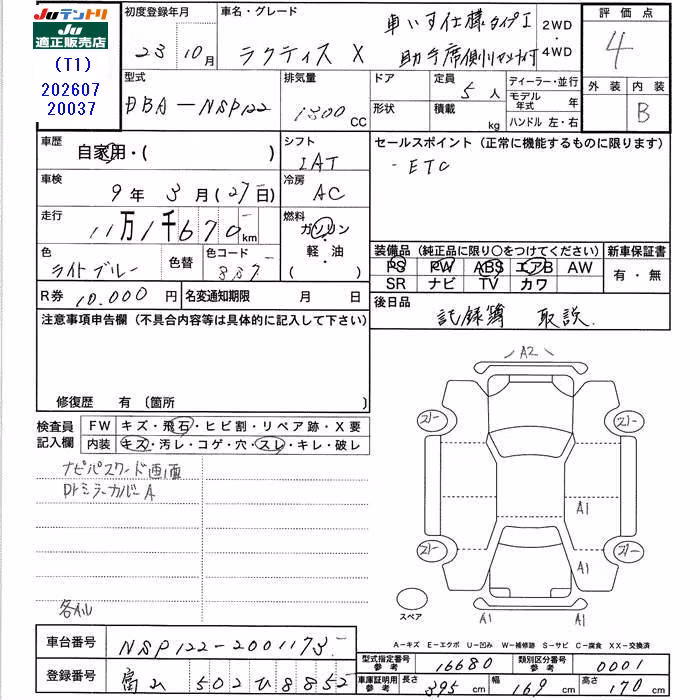 Juテントリ
Ju
適正販売店
(T1)
202607
20037
初度登録年月
23 10月
車名・グレード
ラクティス X
車いす仕様タイプI
助手席側リヤシート付
2WD
・4WD
評価点
4
外装 内装
B
型式
DBA-NSP122
排気量
1300
CC
ドア
形状
定員
5人
積載
kg
ディーラー・並行
モデル年式 年
ハンドル 左・右
車歴
自家用・( )
シフト
IAT
セールスポイント (正常に機能するものに限ります)
・ETC
車検
9年 3月(27日)
冷房
AC
走行
11万1千670km
燃料
ガソリン
・
軽・油
・
( )
色
ライトブルー
色替
色コード
887
装備品 (純正品に限り○をつけてください)
PS PW ABS エアB AW
SR ナビ TV カワ
新車保証書
有・無
R券 10.000円
名変通知期限 月 日
後日品
記録簿 取説
注意事項申告欄 (不具合内容等は具体的に記入して下さい)
修復歴 有 〔箇所 〕
検査員
記入欄
FW キズ・飛石・ヒビ割・リペア跡・X要
内装 キズ・汚レ・コゲ・穴・スレ・キレ・破レ
ナビパスワード画面
Drミラーカバー A
各キズ
A2
A1
A1
A1
スペア
A-キズ E-エクボ U-凹み W-補修跡 S-サビ C-腐食 XX-交換済
車台番号
NSP122-2001173
登録番号
富山 502ひ8852
型式指定番号
参考
16680
類別区分番号
参考
0001
車庫証明用
参考
長さ 395cm 幅 169cm 高さ 170cm